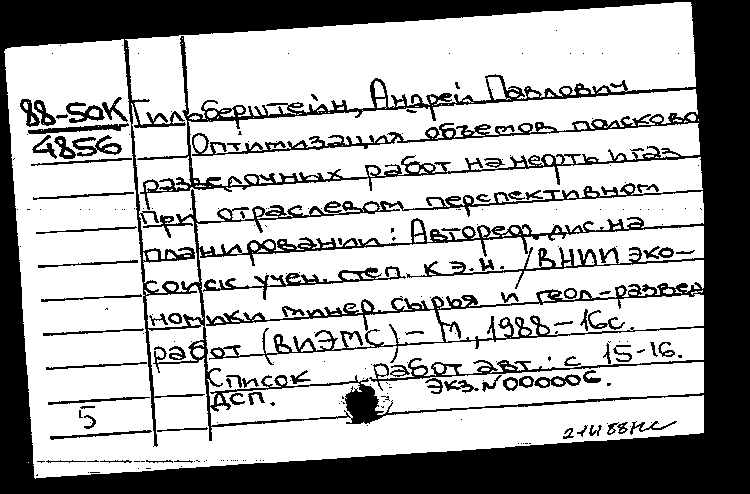 88-50К Гильберштейн, Андрей Павлович
4856 Оптимизация объемов поисково
разведочных работ на нефть и газ
при отраслевом перспективном
планировании: Автореф. дис. на
соиск. учен. степ. к.э.н. / ВНИИ эко-
номики минер. сырья и геол.-развед
работ (ВИЭМС) – М., 1988. – 16с.
Список работ авт.: с 15-16.
ДСП. Экз. N 000006.
5